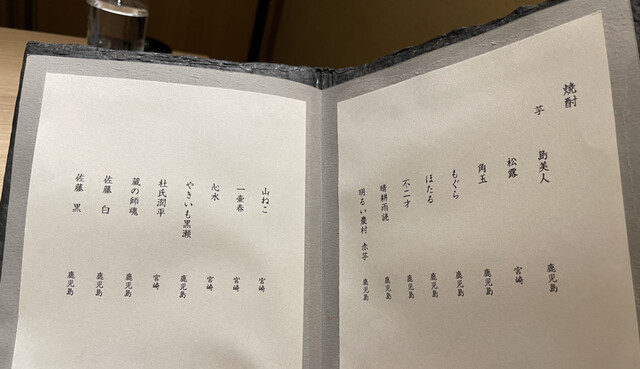 焼酎
芋
島美人 鹿児島
松露 宮崎
角玉 鹿児島
もぐら 鹿児島
ほたる 鹿児島
不二才 鹿児島
晴耕雨読 鹿児島
明るい農村 赤芋 鹿児島
山ねこ 宮崎
一壷春 宮崎
心水 宮崎
やきいも黒瀬 鹿児島
杜氏潤平 宮崎
蔵の師魂 鹿児島
佐藤 白 鹿児島
佐藤 黒 鹿児島